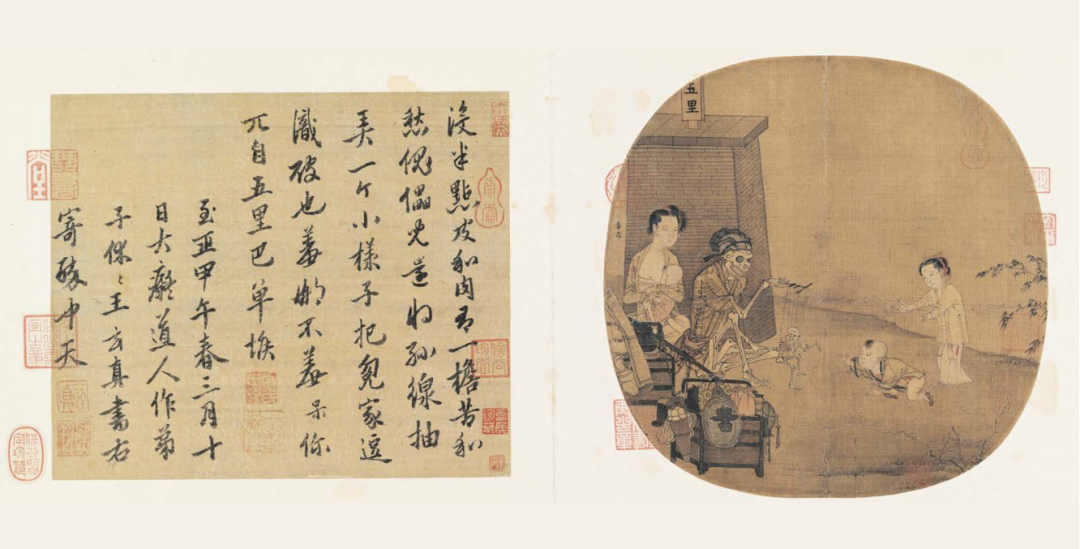 沒半點皮和肉有一擔苦和
愁傀儡兒還將絲線抽
弄一个小樣子把冤家逗
識破也羞那不羞呆你
兀自五里巴单堠
至正甲午春三月十
日大癡道人作弟
子休〻王玄真書右
寄醉中天
五里
李嵩